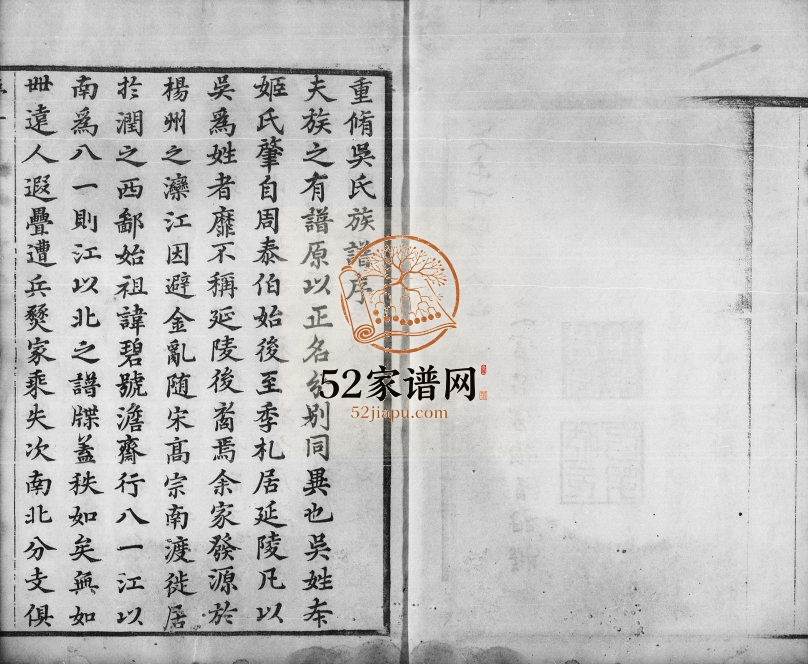 重脩吳氏族譜序
夫族之有譜原以正名分别同異也吳姓夲
姬氏肇自周泰伯始後至季札居延陵凡以
吳爲姓者靡不稱延陵後裔焉余家發源於
楊州之灤江因避金亂随宋髙宗南渡徙居
扵潤之西鄙始祖諱碧號澹齋行八一江以
南爲八一則江以北之譜牒蓋秩如矣無如
丗逺人遐疊遭兵燹家乘失次南北分支俱
52家谱网
52jiapu.com